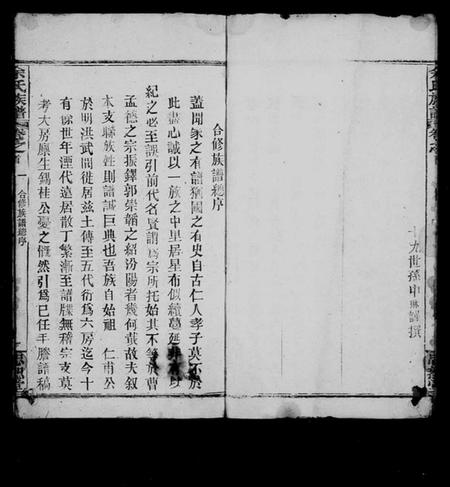 十九世孫中琳謹撰
合修族譜總序
蓋聞家之有譜猶國之有史自古仁人孝子莫不於
此盡心誠以一族之中里居星布似續蔓延非有以
紀之必至誤引前代名賢謂為宗所托始其不等於曹
孟德之宗振鐸郭崇韜之紹汾陽者幾何哉故夫叙
本支聯族姓則譜誠巨典也吾族自始祖 仁甫公
於明洪武間徙居茲土傳至五代衍為六房迄今十
有餘世年湮代遠居散丁繁漸至譜牒無稽宗支莫
考大房廩生錫桂公憂之慨然引為己任手謄譜稿
余氏族譜 卷之首 一 合修族譜總序